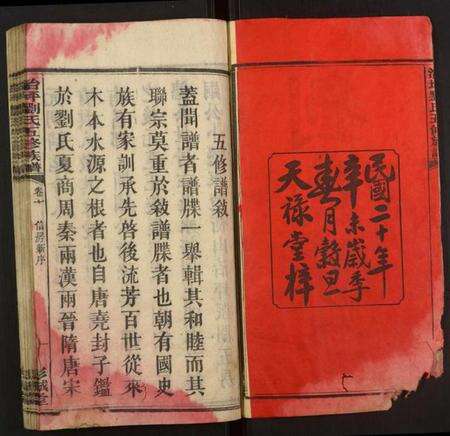 民國二十年
辛未歲季
春月穀旦
天祿堂梓
五修譜敘
蓋聞譜者譜牒一舉輯其和睦而其
聯宗莫重於敘譜牒者也朝有國史
族有家訓承先啓後流芳百世從來
木本水源之根者也自唐堯封子鑑
於劉氏夏商周秦兩漢兩晉隋唐宋
劉氏五修族譜
卷一
彭城堂